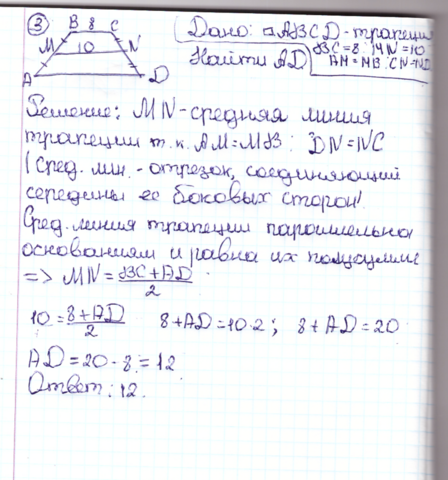 ③ B 8 C
M 10 N
A D
Дано: ▱ABCD-трапеция
BC=8; MN=10
Найти AD
AM=MB; CN=ND
Решение: MN-средняя линия
трапеции т.к. AM=MB; DN=NC
(Сред. лин. - отрезок, соединяющий
середины ее боковых сторон)
Сред. линия трапеции параллельна
основаниям и равна их полусумме
=> MN = BC+AD/2
10 = 8+AD/2 8+AD=10·2; 8+AD=20
AD=20-8=12
Ответ: 12.